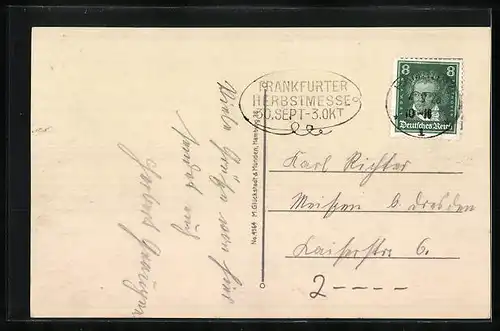 FRANKFURTER
HERBSTMESSE
30.SEPT-3.OKT
8 8
10-11
Deutsches Reich
Viele Grüße von hier
sendet
No. 4164 M. Glückstadt & Münden, Hamburg
Karl Richter
Meißen b. Dresden
Kaiserstr 6.
2----